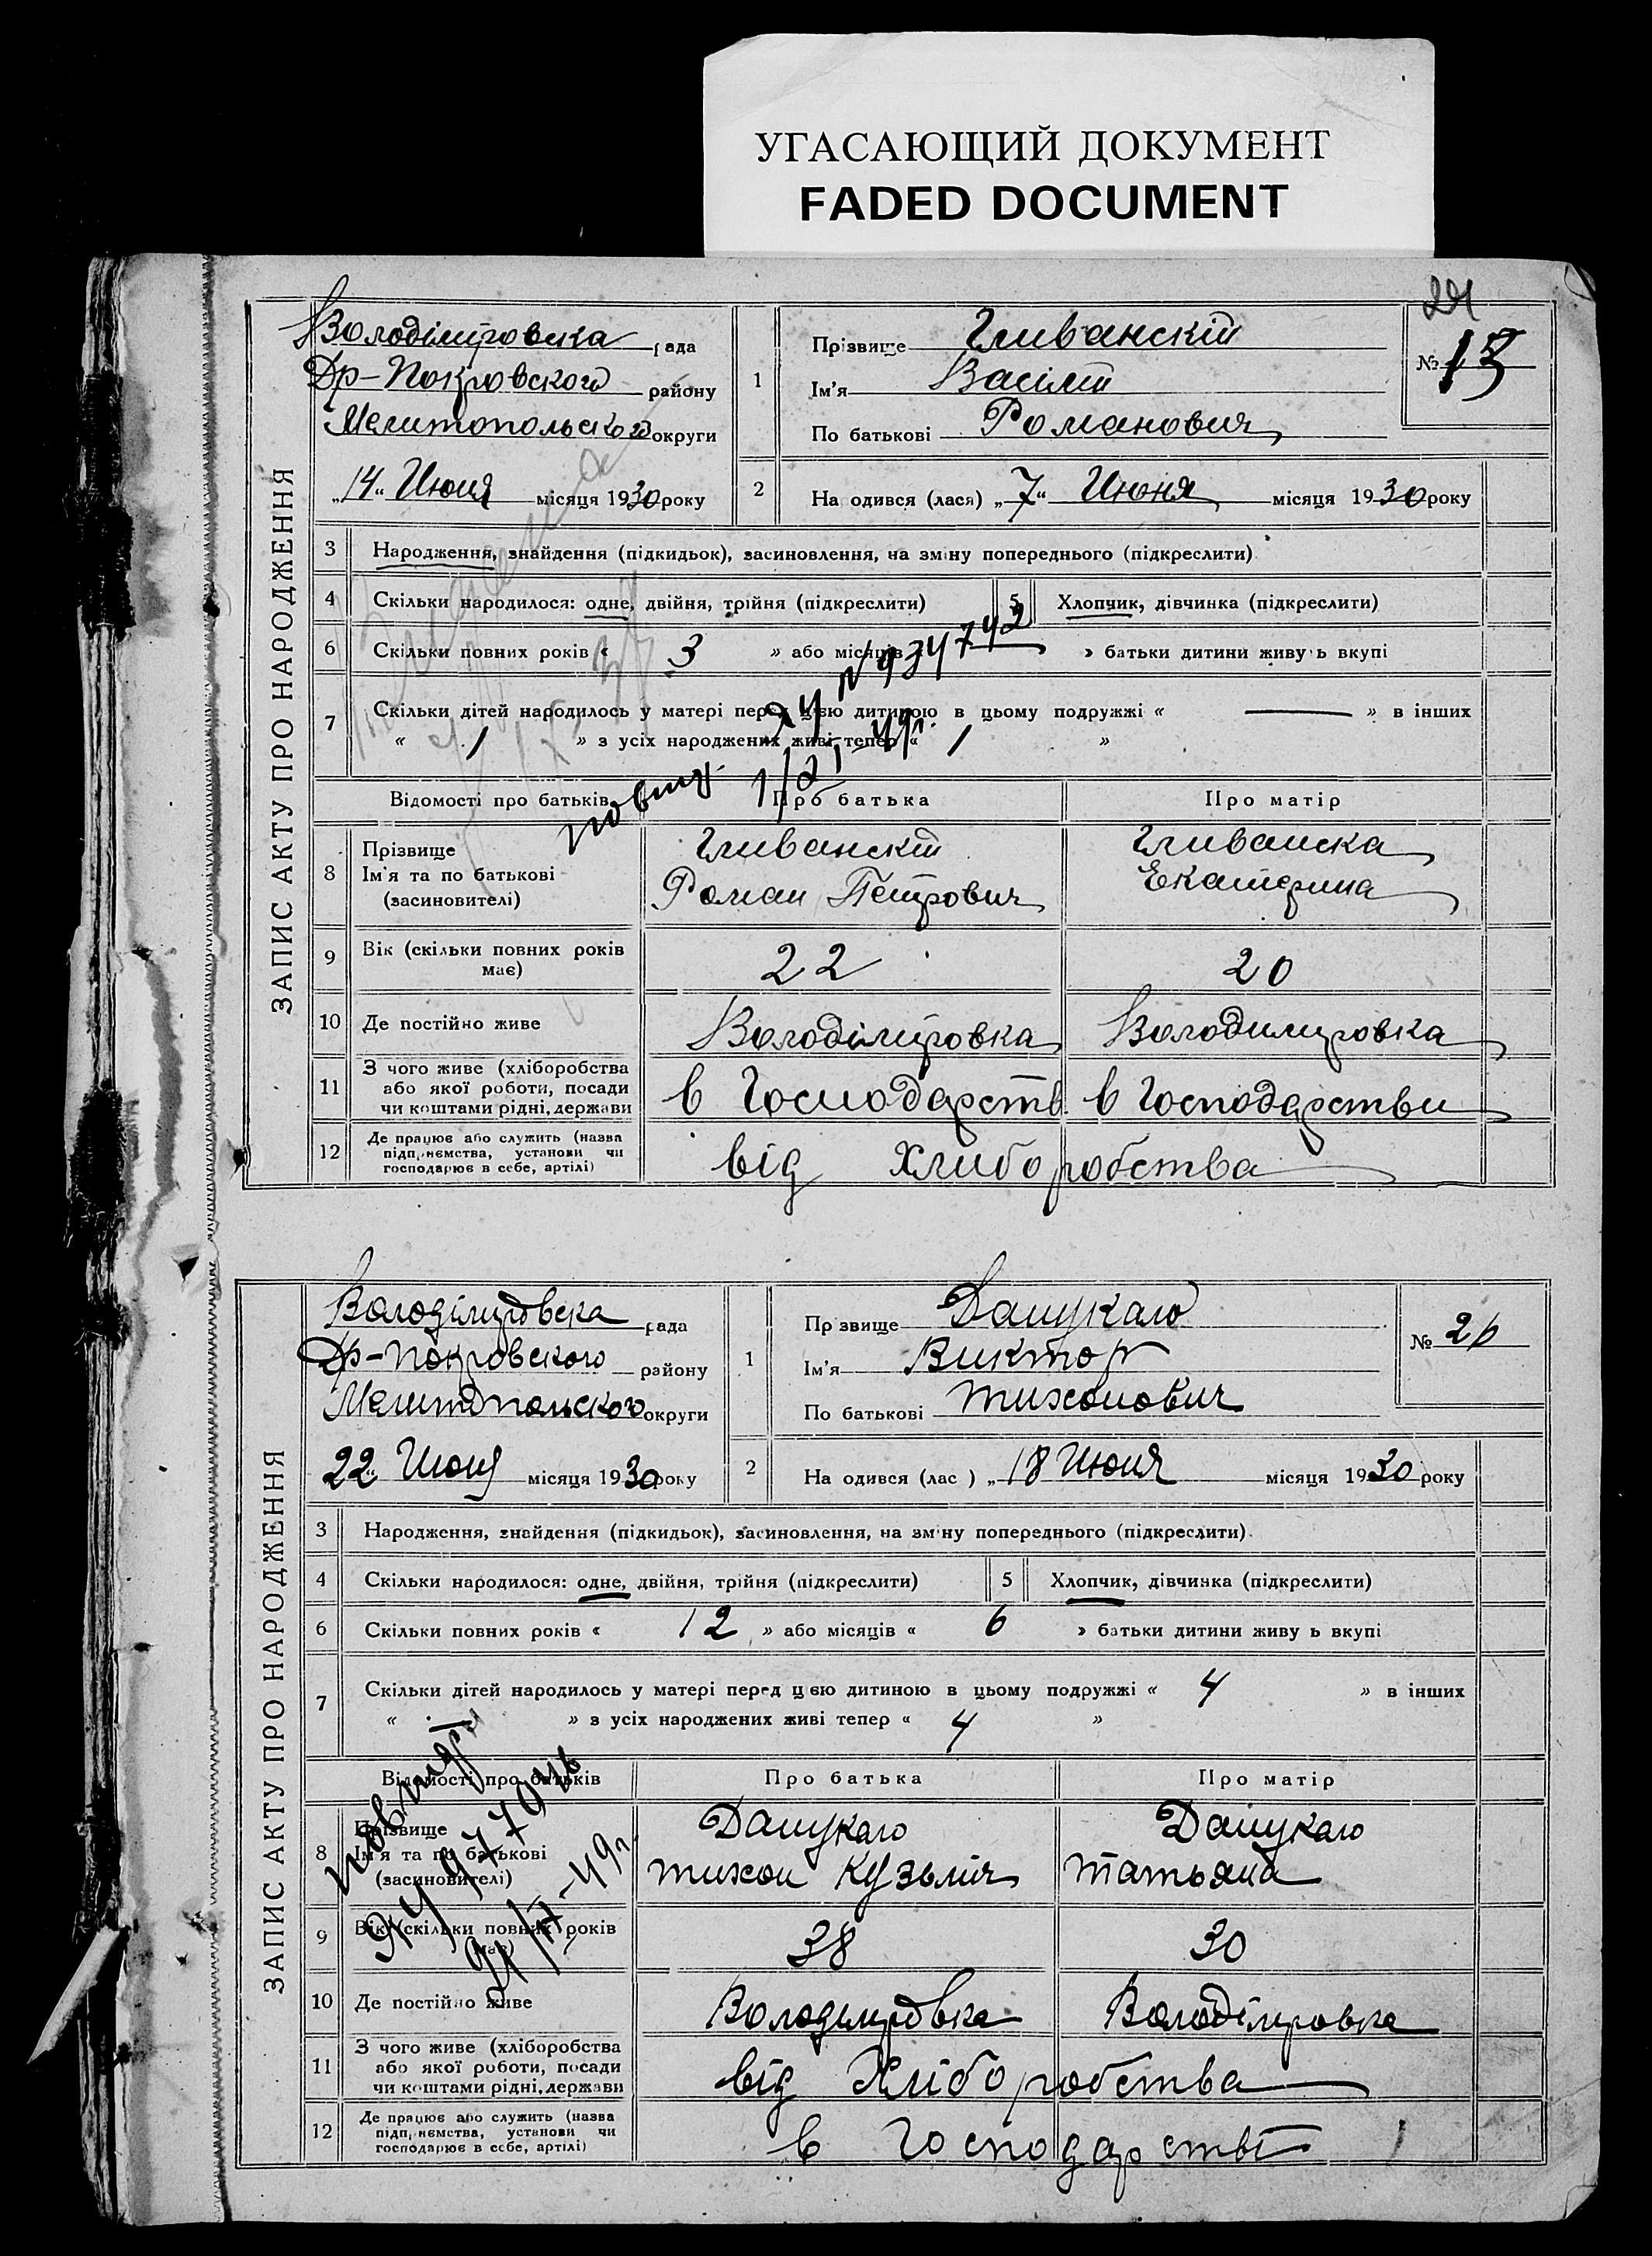 УГАСАЮЩИЙ ДОКУМЕНТ
FADED DOCUMENT
24
ЗАПИС АКТУ ПРО НАРОДЖЕННЯ
Володімировска рада
Др-Покровского району
Мелитопольского округи
„14“ Июня місяця 1930 року
1
Прізвище Гливанский
Ім'я Васілій
По батькові Романович
№
2
На одився (лася) „7“ Июня місяця 1930 року
3 Народження, знайдення (підкидьок), засиновлення, на зміну попереднього (підкреслити)
4 Скільки народилося: одне, двійня, трійня (підкреслити) 5 Хлопчик, дівчинка (підкреслити)
6 Скільки повних років « 3 » або місяців » батьки дитини живу ь вкупі
7 Скільки дітей народилось у матері перед цією дитиною в цьому подружжі « — » в інших
« 1 » з усіх народжених живі тепер « 1 »
повтор.
Відомості про батьків Про батька Про матір
8 Прізвище
Ім'я та по батькові
(засиновителі)
Гливанскій
Роман Петрович
Гливанска
Екатерина
9 Вік (скільки повних років має) 22 20
10 Де постійно живе Володімировка Володимировка
11 З чого живе (хліборобства
або якої роботи, посади
чи коштами рідні, держави
в Господарств в Господарстви
12 Де працює або служить (назва
підприємства, установи чи
господарює в себе, артілі)
від Хлиборобства
ЗАПИС АКТУ ПРО НАРОДЖЕННЯ
Володімировска рада
Др-Покровского району
Мелитопольского округи
22 Июня місяця 1930 року
1
Пр звище Дашукало
Ім'я Виктор
По батькові Тихонович
№ 26
2
На одився (лас ) „18 Июня місяця 1930 року
3 Народження, знайдення (підкидьок), засиновлення, на зміну попереднього (підкреслити)
4 Скільки народилося: одне, двійня, трійня (підкреслити) 5 Хлопчик, дівчинка (підкреслити)
6 Скільки повних років « 12 » або місяців « 6 » батьки дитини живу ь вкупі
7 Скільки дітей народилось у матері перед цією дитиною в цьому подружжі « 4 » в інших
« — » з усіх народжених живі тепер « 4 »
Відомості про батьків Про батька Про матір
8 Прізвище
Ім'я та по батькові
(засиновителі)
Дашукало
Тихон Кузьмич
Дашукало
Татьяна
9 Вік (скільки повних років має) 38 30
10 Де постійно живе Володимировка Володімировка
11 З чого живе (хліборобства
або якої роботи, посади
чи коштами рідні, держави
від Хліборобства
12 Де працює або служить (назва
підприємства, установи чи
господарює в себе, артілі)
в Господарстві